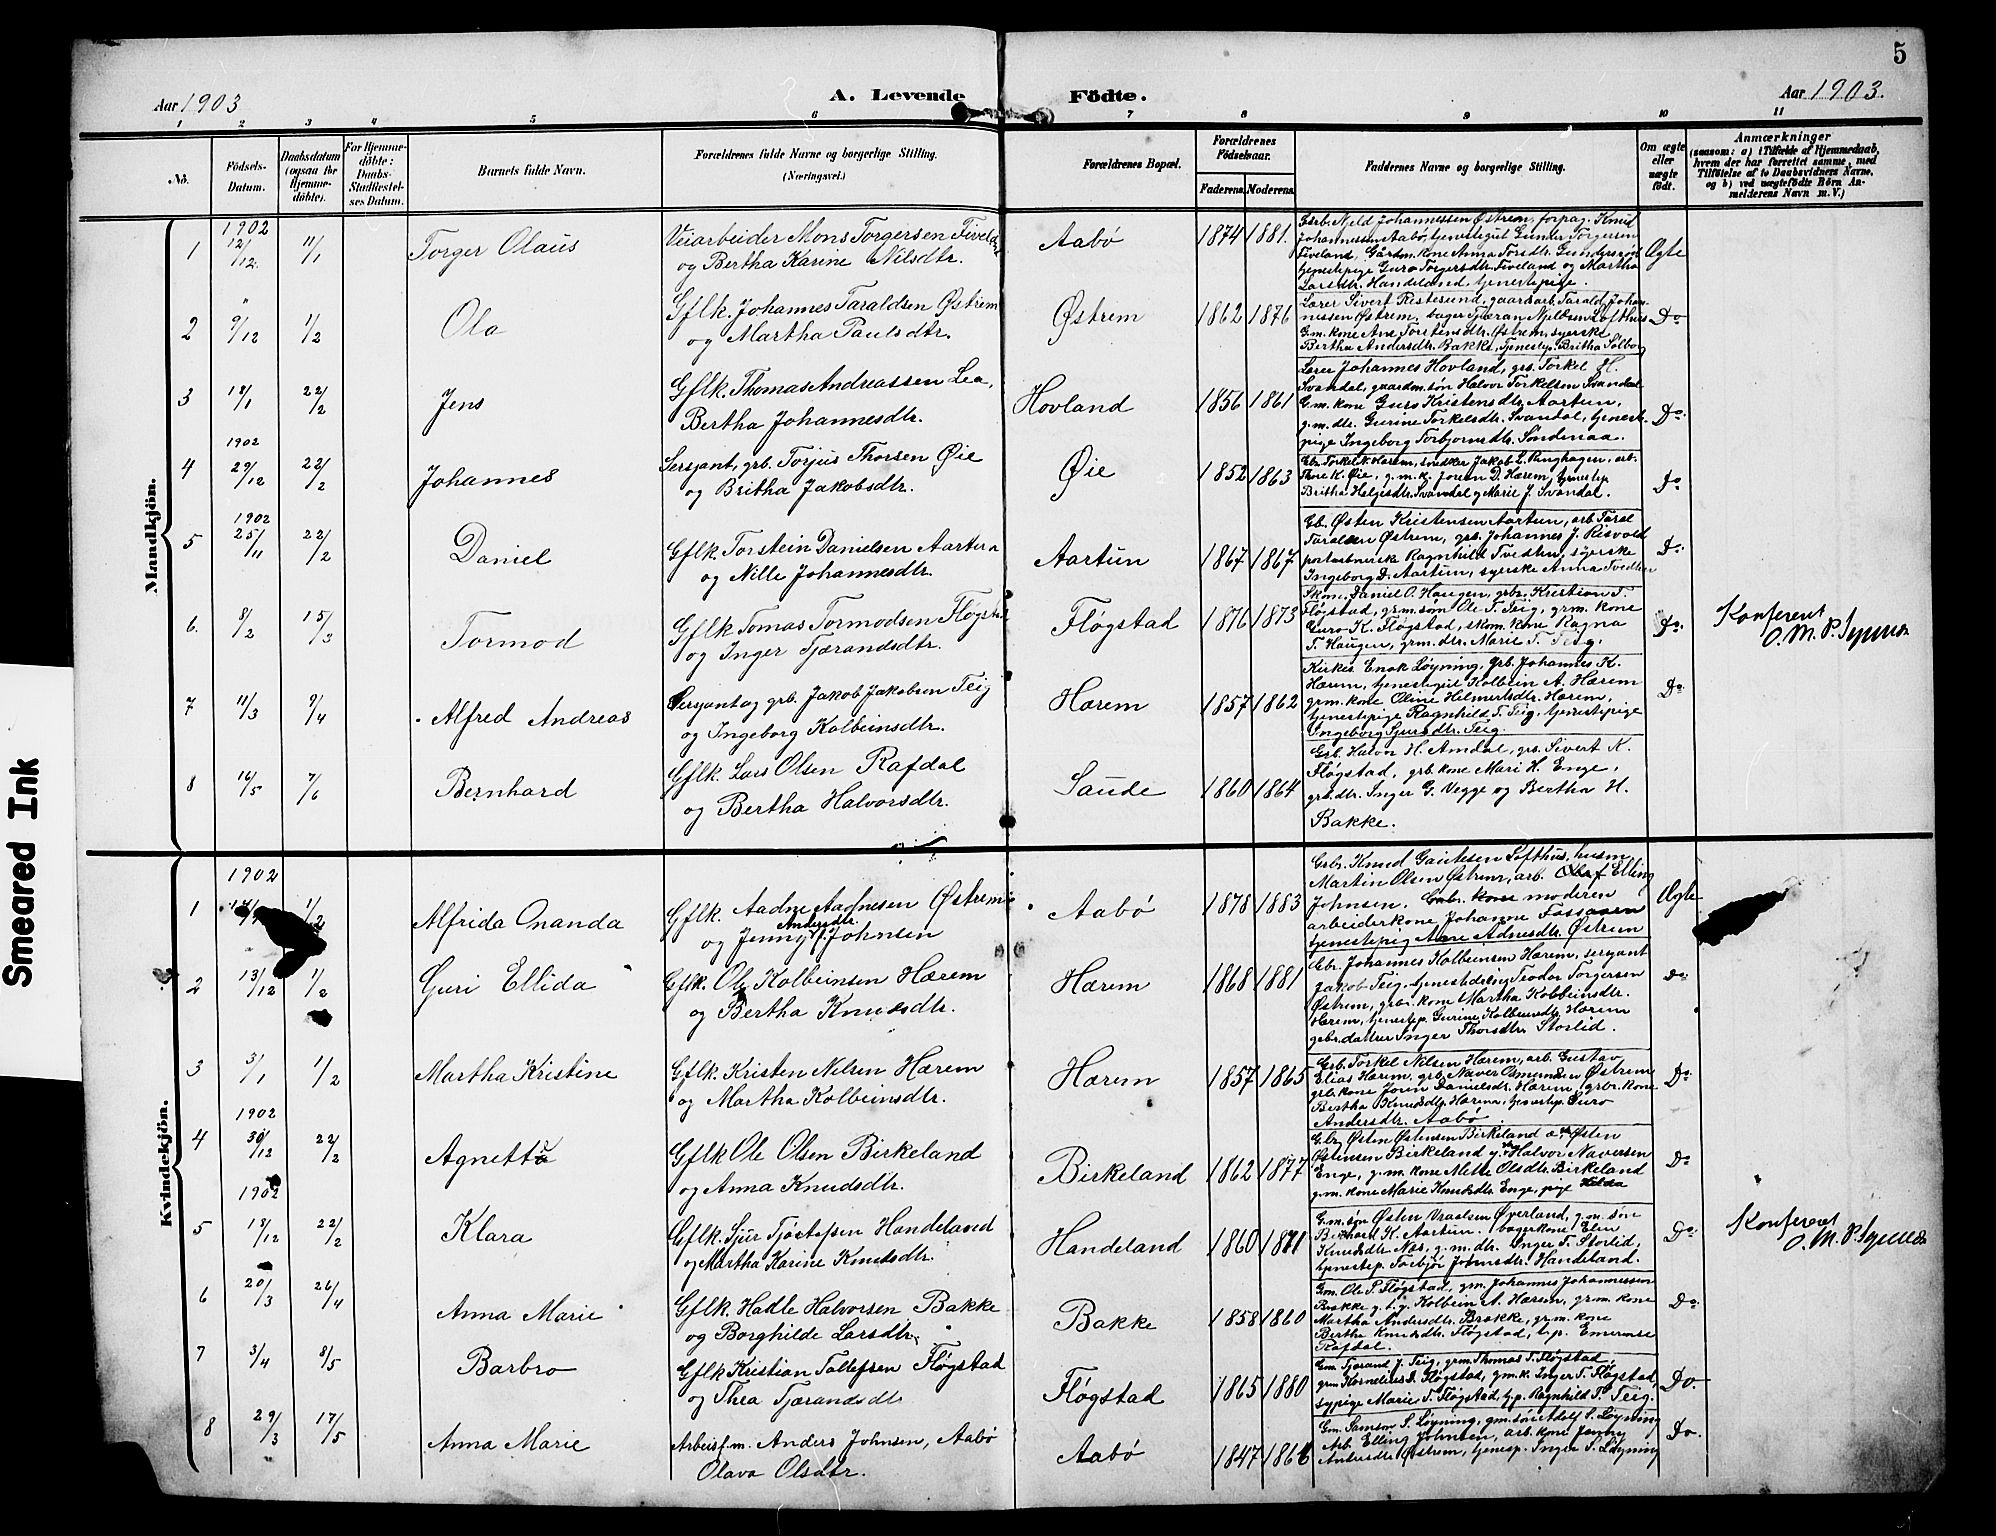 5
Aar 1903
A. Levende Fødte.
Aar 1903.
1 2 3 4 5 6 7 8 9 10 11
No.
Fødsels-Datum.
Daabsdatum (ogsaa for Hjemmedøbte).
For Hjemmedøbte: Daabs-Stadfæstelses Datum.
Barnets fulde Navn.
Forældrenes fulde Navne og borgerlige Stilling. (Næringsvei.)
Forældrenes Bopæl.
Forældrenes Fødselsaar.
Faderens. Moderens.
Faddernes Navne og borgerlige Stilling.
Om ægte eller uægte født.
Anmærkninger
(saasom: a) i Tilfælde af Hjemmedaab, hvem der har forrettet samme, med Tilføielse af to Daabsvidners Navne, og b) ved uægtefødte Børn Anmelderens Navn m. V.)
Mandkjøn.
1902
1 12/12. 11/1 Torger Olaus
Veiarbeider Mons Torgersen Fiveland
og Bertha Karine Nilsdtr.
Aabø 1874 1881.
Johannessen Aabø, tjenestegut Gunder Torgersen
Fiveland, Gårdm. kone Anna Torsdtr. Gundersen
tjenestepige Guro Torgersdtr. Fiveland og Martha
Larsdtr. Handeland, tjenestepige.
Ægte
2 9/12 1/2 Ola
Gflk. Johannes Taraldsen Østrem
og Martha Paulsdtr.
Østrem 1862 1876
Lærer Sivert Ristesund, gaardarb. Tarald Johan-
nissen Østrem, bager Tjæran Njeldsen Lofthus
G.m. kone Ane Torstensdtr. Østrem, syerske
Bertha Andersdtr. Bakke, Tjenestep. Britha Solborg
Do
3 18/1 22/2 Jens
Gflk. Thomas Andreassen Lea,
Bertha Johannesdtr.
Hovland 1856 1861
Lærer Johannes Hovland, grs. Torkel H.
Svandal, gaardm. søn Halvor Torkelsen Svandal
G.m. kone Guro Kristensdtr. Aartun,
g.m. dtr. Gurine Torkelsdtr. Svandal, tjeneste-
pige Ingeborg Torbjørnsdtr. Søndenaa.
Do.
1902
4 29/12 22/2 Johannes
Sersjant, grb. Torjus Thorsen Øie
og Britha Jakobsdtr.
Øie 1852 1863
Gbr. Torkel K. Hærem, snedker Jakob L. Ringhagen, arb.
Tore K. Øie, g.m.k. Joren D. Hærem, tjenestep
Britha Helgesdtr. Svandal og Marie J. Svandal.
Do
1902
5 25/11 22/2 Daniel
Gflk. Torstein Danielsen Aartun
og Nille Johannesdtr.
Aartun 1867 1867
Gb. Østen Kristensen Aartun, arb Taral
Taralsen Østrem, grs. Johannes J. Risvold
Ragnhild Tveiten, syerske
Ingeborg D. Aartun, syerske Anna Tvedten
Do.
6. 8/2 15/3 Tormod
Gflk Tomas Tormodsen Fløgstad
og Inger Tjærandsdtr.
Fløgstad 1876 1873
Skom. Daniel O. Haugen, grbr. Kristian T.
Fløgstad, grm. søn Ole T. Teig, grm. kone
Guro K. Fløgstad, skom. kone Ragna
T. Haugen, grm. dtr. Marie T. Teig.
Do.
Konferent
7 11/3 9/4 Alfred Andreas
Sersjant og grb. Jakob Jakobsen Teig
og Ingeborg Kolbeinsdtr.
Hærem 1857 1862
Kirkes. Enok Løyning, grb. Johannes K.
Hærem, tjenestegut Kolbein A. Hærem
grm. kone Oline Helmertsdtr. Hærem,
tjenestepige Ragnhild T. Teig, tjenestepige
Ingeborg Sjursdtr. Teig.
Do.
8 16/5 7/6 Bernhard
Gflk. Lars Olsen Rafdal
og Bertha Halvorsdtr.
Saude 1860 1864
Grb. Halvor H. Amdal, grs. Sivert K.
Fløgstad, grb. kone Mari H. Enge,
grb. dtr. Inger G. Vegge og Bertha H.
Bakke.
Kvindekjøn.
1902
1 1/2 Alfrida Ananda
Gflk. Aadne Aadnesen Østrem
Andersdtr.
og Jenny f. Johnsen
Aabø 1878 1883
Grb. Knud Gautesen Lofthus, husm
Martin Olsen Østrem, arb. Olaf Elling
Johnsen. Gnbr. kone moderen
arbeiderkone Johanne Fossaaen
tjenestepig Ane Adnesdtr. Østrem
Ægte
2 13/12 1/2 Guri Ellida
Gflk. Ole Kolbeinsen Hærem
og Bertha Knudsdtr.
Hærem 1868 1881
Gbr. Johannes Kolbeinsen Hærem, serjant
Jakob Teig, Teodor Torgersen
Østrem, grbr. kone Martha Kolbeinsdtr.
Hærem, tjenestep. Gurine Kolbeinsdtr. Hærem
gbr. datter Inger Thorsdtr. Storlid.
Do.
3 3/1 1/2 Martha Kristine
Gflk. Kristen Nilsen Hærem
og Martha Kolbeinsdtr.
Hærem 1857 1865
Grb. Torkel Nilsen Hærem, arb. Gustav
Elias Hærem, grb. Naver Osmundsen Østrem
grb. kone Joren Danielsdtr. Hærem, grbr. kone
Bertha Knudsdtr. Hærem, tjenestep. Guro
Andersdtr. Aabø
Do.
1902
4 30/12 22/2 Agnetta
Gflk Ole Olsen Birkeland
og Anna Knudsdtr.
Birkeland 1862 1877
Gbr. Østen Østensen Birkeland, Østen
Østensen Birkeland, Halvor Naversen
Enge, g.m. kone Mette Olsdtr. Birkeland
g.m. kone Marie Knudsdtr. Enge, pige Hilda
Do
1902
5 18/12 22/2 Klara
Gflk. Sjur Tjøstofsen Handeland
og Martha Karine Knudsdtr.
Handeland 1860 1871
G.m. søn Østen Vraalsen Øverland, g.m. søn
K. Aartun, bagerkone Elin
Knudsdtr Næs, g.m. dtr. Inger T. Storlid,
tjenestep. Torbjør Johnsdtr. Handeland.
Do.
Konferent
6 20/3 26/4 Anna Marie
Gflk. Hadle Halvorsen Bakke
og Borghilde Larsdtr.
Bakke 1858 1860
Gm. Ole P. Fløgstad, gm. Johannes Johannessen
Bakke g. t. g. Kolbein A. Hærem, gr.m. kone
Martha Andersdtr. Bakke, gr.m. kone
Bertha Knudsdtr. Fløgstad, t.p.
Rafdal.
Do.
7 3/4 8/5 Barbro
Gflk Kristian Tollefsen Fløgstad
og Thea Tjærandsdtr
Fløgstad 1865 1880
Gm. Tjærand J. Teig, grm. Thomas T. Fløgstad,
grm Kornelius D. Fløgstad, gm.k. Inger T. Fløgstad,
sypige Marie T. Fløgstad, t.p. Ragnhild T. Teig.
Do.
8 29/3 17/5 Anna Marie
Arbeisf.m. Anders Johnsen, Aabø
Olava Olsdtr.
Aabø 1847 1866
Gm. Samson S. Løyning, gm. søn Adolf S. Løyning
Arb. Elling Johnsen, arb. kone Jenny
Andersdtr Østrem, tjenesp. Inger S. Løyning
Do.
Smeared Ink